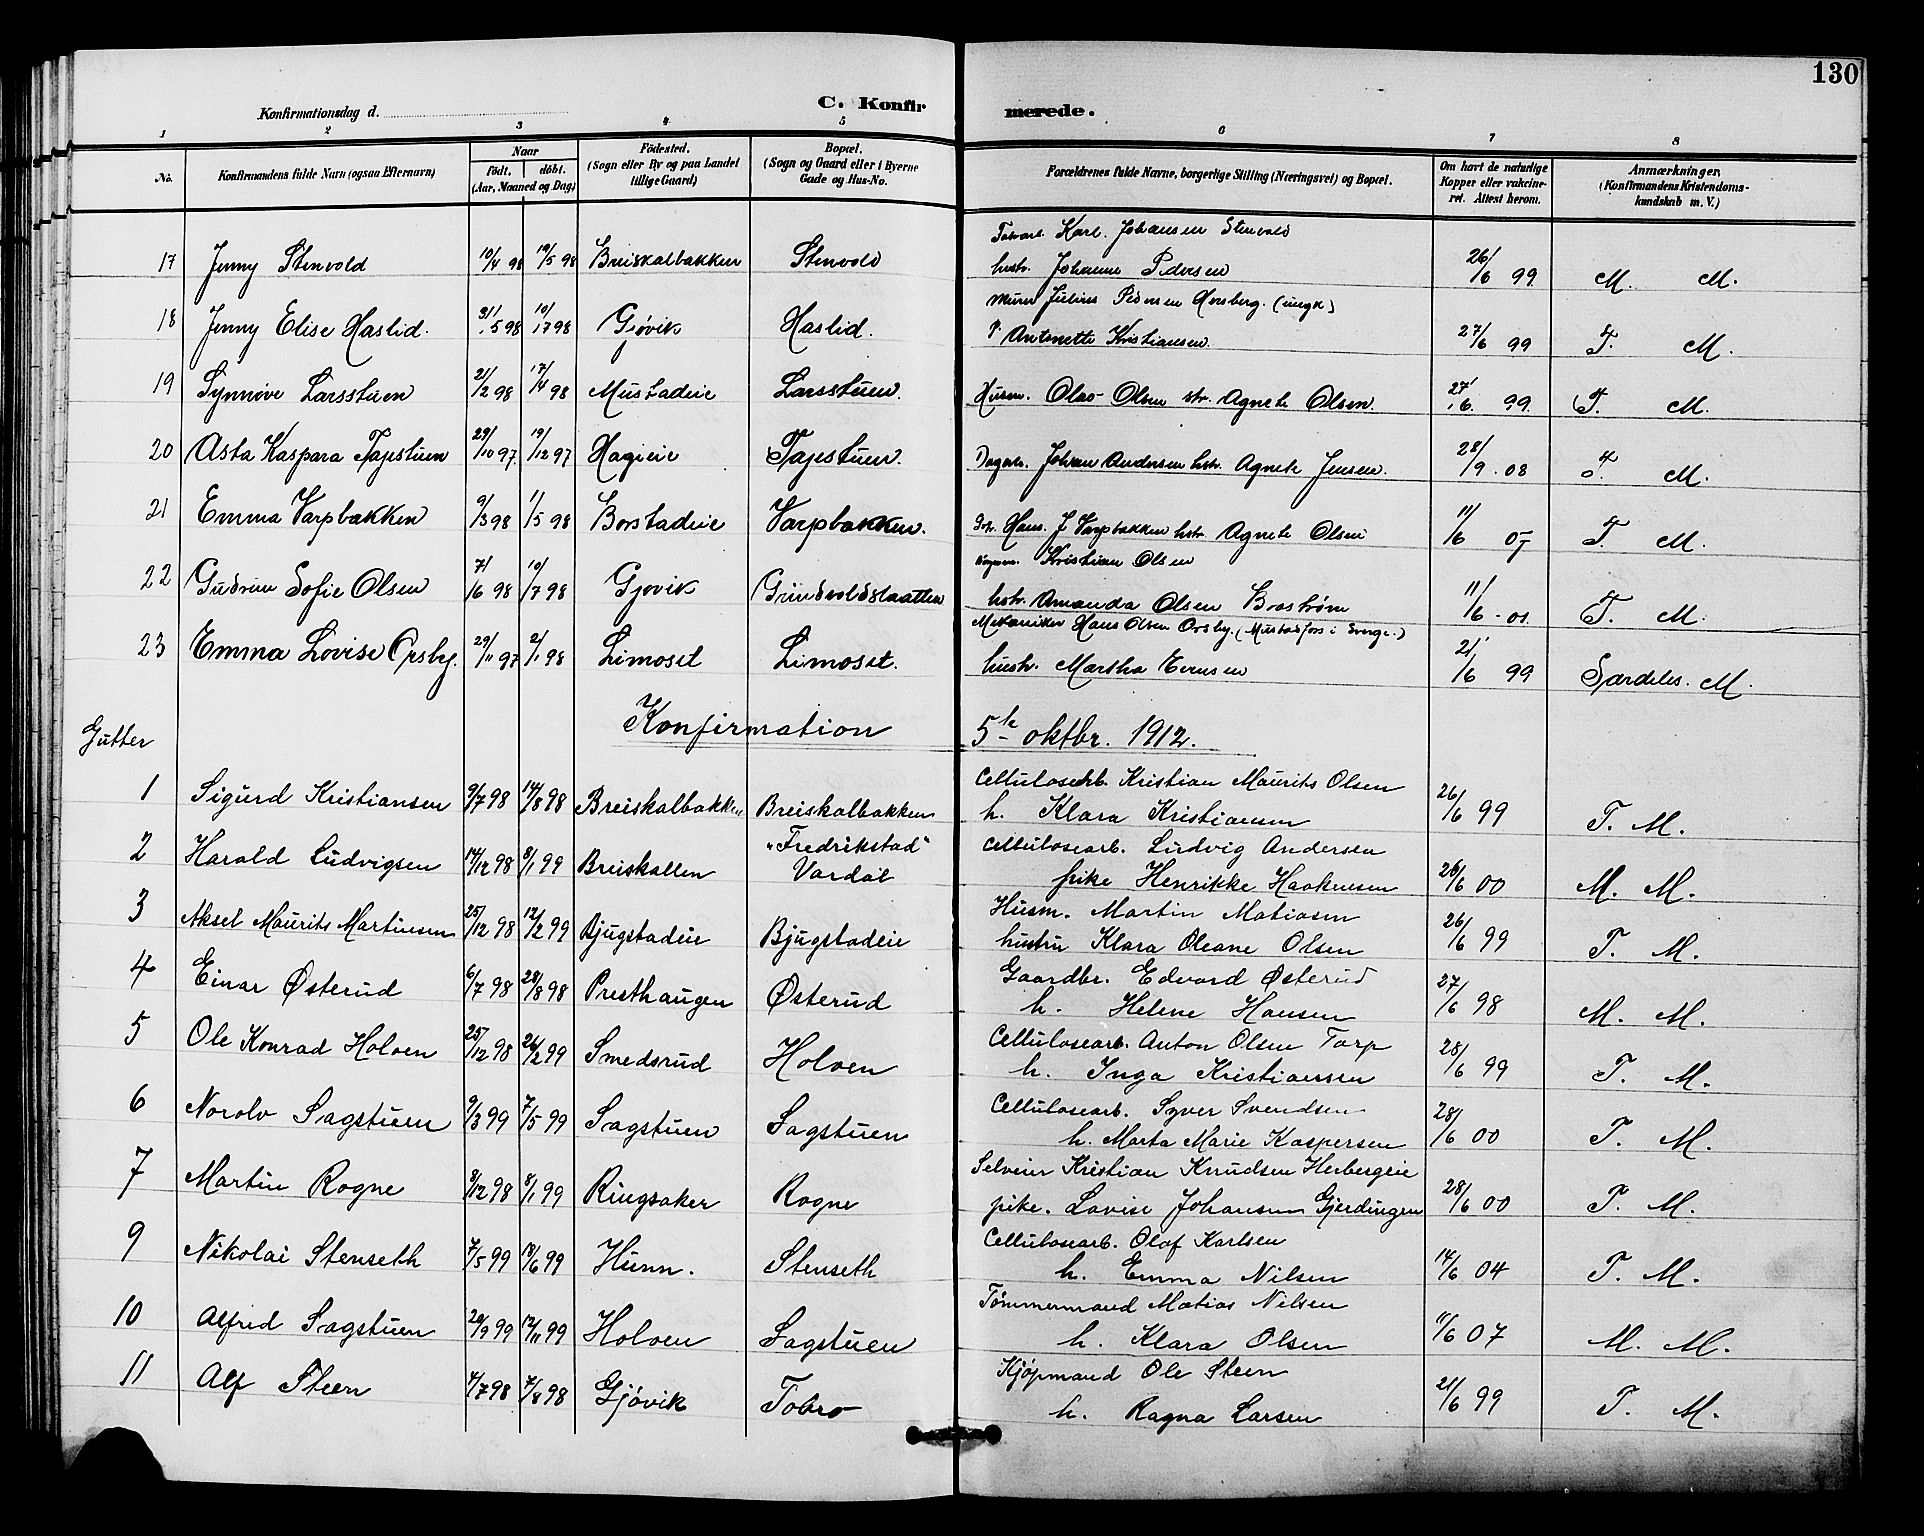 130
Konfirmationsdag d.
C. Konfir merede.
1 2 3 4 5 6 7 8
No. Konfirmandens fulde Navn (ogsaa Efternavn) Naar födt. döbt. (Aar, Maaned og Dag) Födested. (Sogn eller By og paa Landet tillige Gaard) Bopæl. (Sogn og Gaard eller i Byerne Gade og Hus-No. Forældrenes fulde Navne, borgerlige Stilling (Næringsvei) og Bopæl. Om havt de naturlige Kopper eller vakcineret. Attest herom. Anmærkninger, (Konfirmandens Kristendomskundskab m. V.)
Karl. Johansen Stenvold
17 Jenny Stenvold 10/4 98 19/5 98 Breiskalbakken Stenvold hstr. Johanne Pedersen 26/6 99 M. M.
Murer Julius Pedersen Horsberg. (ungk)
18 Jenny Elise Haslid. 31/5 98 10/7 98 Gjøvik Haslid. P. Antonette Kristiansen 27/6 99 T. M.
19 Synnøve Larsstuen 21/2 98 17/4 98 Mustadeie Larsstuen. Husm. Olav Olsen str. Agnete Olsen. 27/6. 99 T. M.
20 Asta Kaspara Tajestuen 29/10 97. 19/12 97 Hageie Tajestuen. Dagarb. Johan Andersen hstr. Agnete Jensen. 28/9 - 08 T. M.
21 Emma Varpbakken 9/3 98 1/5 98 Borstadeie Varpbakken. Hans. J Varpbakken hstr. Agnete Olsen 11/6 07 T. M.
Kristian Olsen
22 Gudrun Sofie Olsen 7/6 98 10/7 98 Gjøvik Grindvoldslaatten hstr. Amanda Olsen Broström 11/6 - 01 T. M.
Mekaniker Hans Olsen Orsby. (Mustadfors i Sverge.)
23 Emma Lovise Orsby. 29/11 97 2/1 98 Limoset Limoset. hustr. Martha Evensen 21/6 99 Særdeles. M.
Konfirmation 5te oktbr. 1912.
Gutter
Cellulosearb. Kristian Maurits Olsen
1 Sigurd Kristiansen 9/7 98 14/8 98 Breiskalbakken Breiskalbakken h. Klara Kristiansen 26/6 99 T. M.
"Fredrikstad" Cellulosearb. Ludvig Andersen
2 Harald Ludvigsen 14/12 98 8/1 99 Breiskallen Vardal pike Henrikke Haakensen 26/6 00 M. M.
Husm. Martin Matiasen
3 Aksel Maurits Martinsen 25/12 98 12/2 99 Bjugstadeie Bjugstadeie hustru Klara Oleane Olsen 26/6 99 T. M.
Gaardbr. Edvard Østerud
4 Einar Østerud 6/7 98 28/8 98 Presthaugen Østerud h. Helene Hansen 27/6 98 M. M.
Cellulosearb. Anton Olsen Tarp
5 Ole Konrad Holven 25/12 98 26/2 99 Smedsrud Holven h. Inga Kristiansen 28/6 99 T. M.
Cellulosearb. Syver Svendsen
6 Norolv Sagstuen 9/3 99 7/5 99 Sagstuen Sagstuen h. Marta Marie Kaspersen 28/6 00 T. M.
Selveier Kristian Knudsen Herbergeie
7 Martin Rogne 3/12 98 8/1 99 Ringsaker Rogne pike. Lovise Johansen Gjerdingen 28/6 00 T. M.
Cellulosearb. Olof Karlsen
9 Nikolai Stenseth 7/5 99 18/6 99 Hunn. Stenseth h. Emma Nilsen 14/6 04 T. M.
Tömmermand Matias Nilsen
10 Alfred Sagstuen 20/9 99 12/11 99 Holven Sagstuen h. Klara Olsen 11/6 07 M. M.
Kjöpmand Ole Steen
11 Alf Steen 4/7 98 7/8 98 Gjövik Tobro h. Ragna Larsen 21/6 99 T. M.